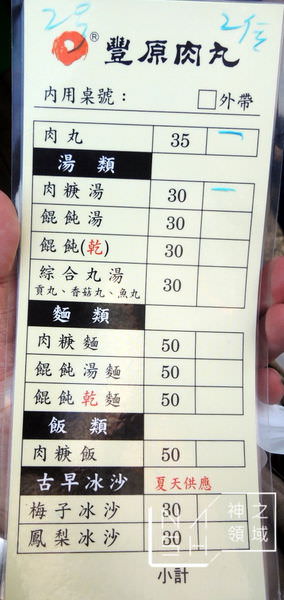 2号
®
豐原肉丸
內用桌號：
□外帶
肉丸 35 一
湯類
肉糠湯 30 一
餛飩湯 30
餛飩(乾) 30
綜合丸湯 30
貢丸、香菇丸、魚丸
麵類
肉糠麵 50
餛飩湯麵 50
餛飩乾麵 50
飯類
肉糠飯 50
古早冰沙 夏天供應
梅子冰沙 30
鳳梨冰沙 30
神之領域
小計